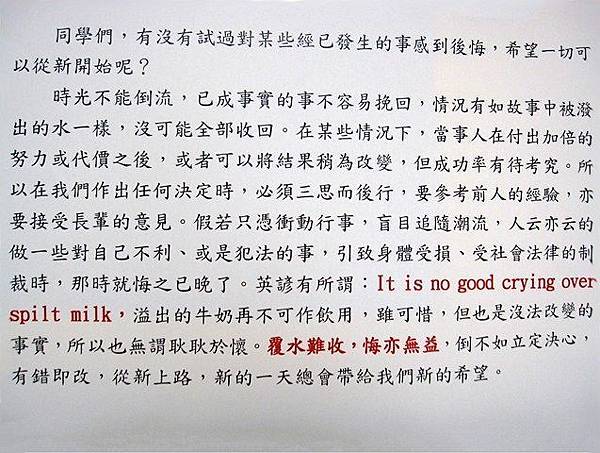 同學們，有沒有試過對某些經已發生的事感到後悔，希望一切可
以從新開始呢？
時光不能倒流，已成事實的事不容易挽回，情況有如故事中被潑
出的水一樣，沒可能全部收回。在某些情況下，當事人在付出加倍的
努力或代價之後，或者可以將結果稍為改變，但成功率有待考究。所
以在我們作出任何決定時，必須三思而後行，要參考前人的經驗，亦
要接受長輩的意見。假若只憑衝動行事，盲目追隨潮流，人云亦云的
做一些對自己不利、或是犯法的事，引致身體受損、受社會法律的制
裁時，那時就悔之已晚了。英諺有所謂：It is no good crying over
spilt milk，溢出的牛奶再不可作飲用，雖可惜，但也是沒法改變的
事實，所以也無謂耿耿於懷。覆水難收，悔亦無益，倒不如立定決心，
有錯即改，從新上路，新的一天總會帶給我們新的希望。